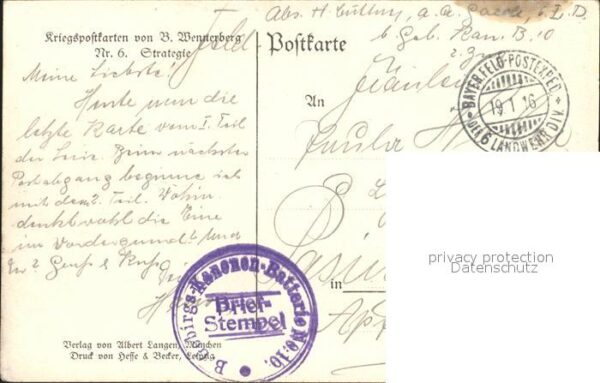 Kriegspostkarten von B. Wennerberg
Nr. 6. Strategie
Feld
Postkarte
Abs. H.
Geb. Kan. B. 10
An
Fräulein
Paula
in
BAYER. FELD-POSTEXPED.
19 1 16
DER 6 LANDWEHR DIV.
Meine Liebste!
Heute nun die
letzte Karte vom I. Teil
der Serie. Beim nächsten
Postabgang beginne ich
mit dem 2. Teil. Wohin
denkt wohl die Eine
im Vordergrund? Und
Gruß & Kuß
B. Gebirgs-Kanonen-Batterie No. 10.
Brief-
Stempel
Verlag von Albert Langen, München
Druck von Hesse & Becker, Leipzig
privacy protection
Datenschutz